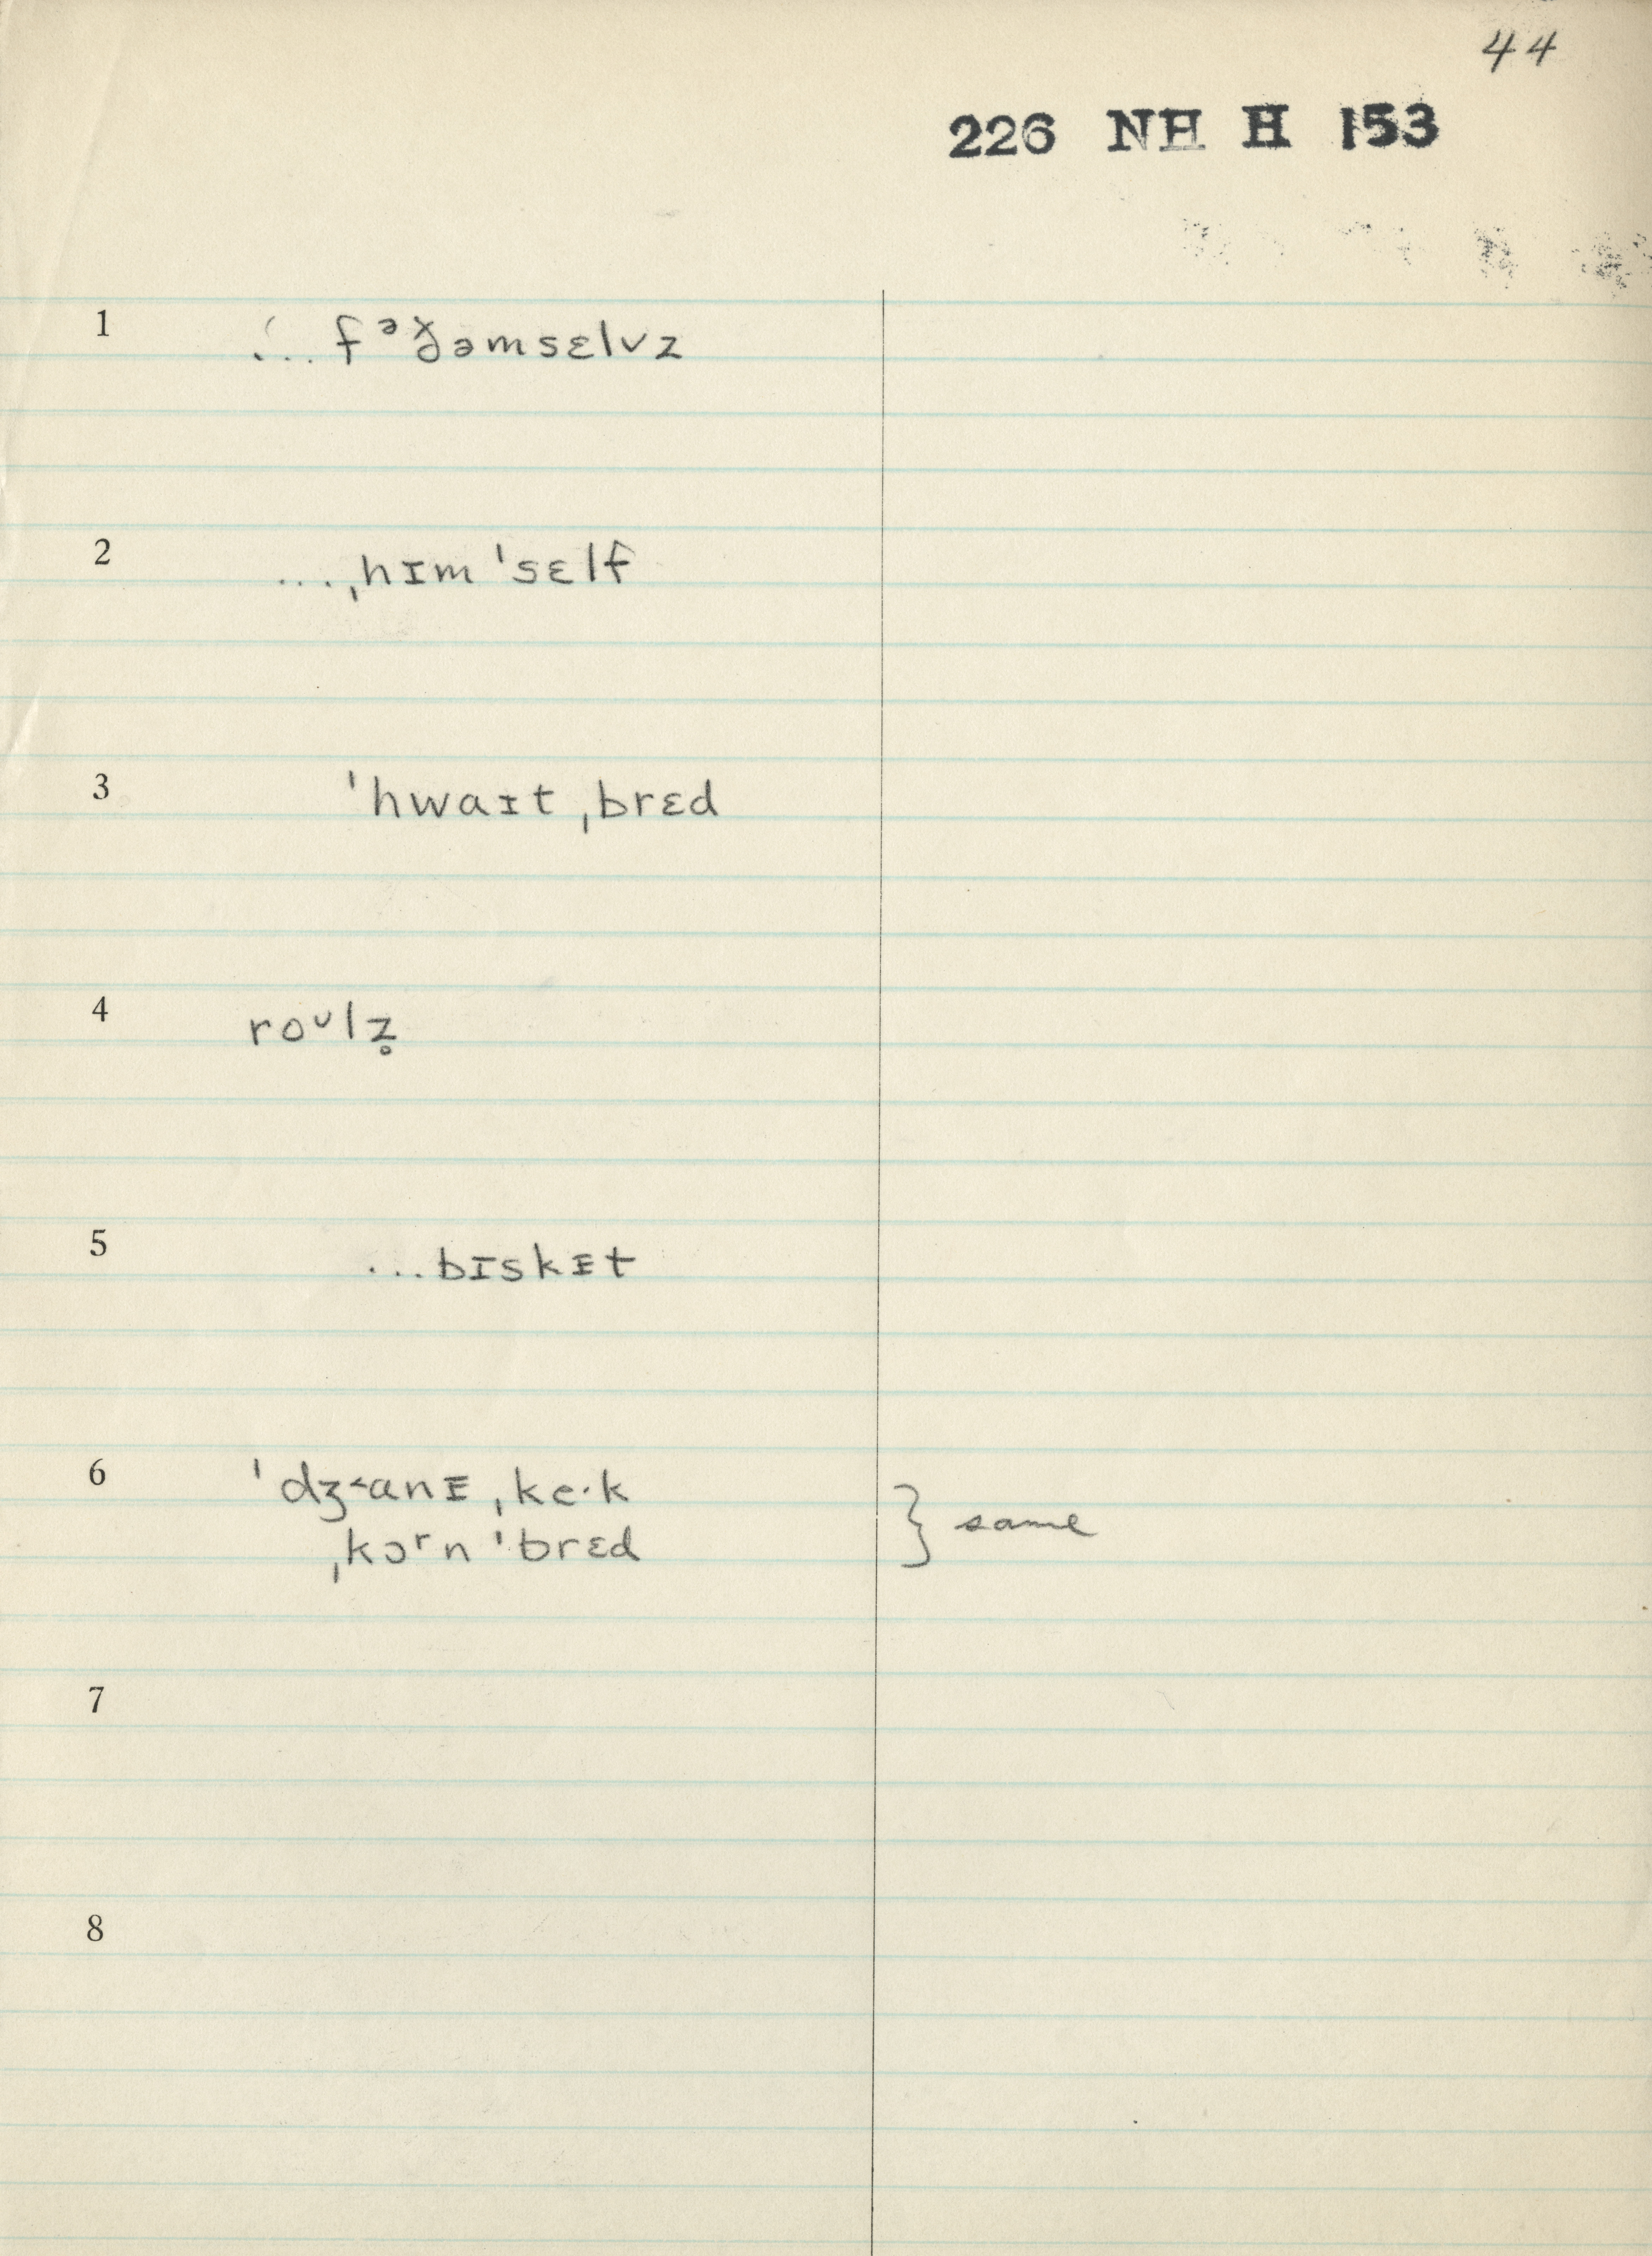 44
226 NH H 153
1 ... fᵊðəmsɛlvz
2 ...ˌhɪm ˈsɛlf
3 ˈhwaɪt ˌbrɛd
4 roᶷlz̥
5 ...bɪskᵻt
6 ˈdʒ˂anᵻ ˌkeˑk
ˌkɔʳn ˈbrɛd } same
7
8